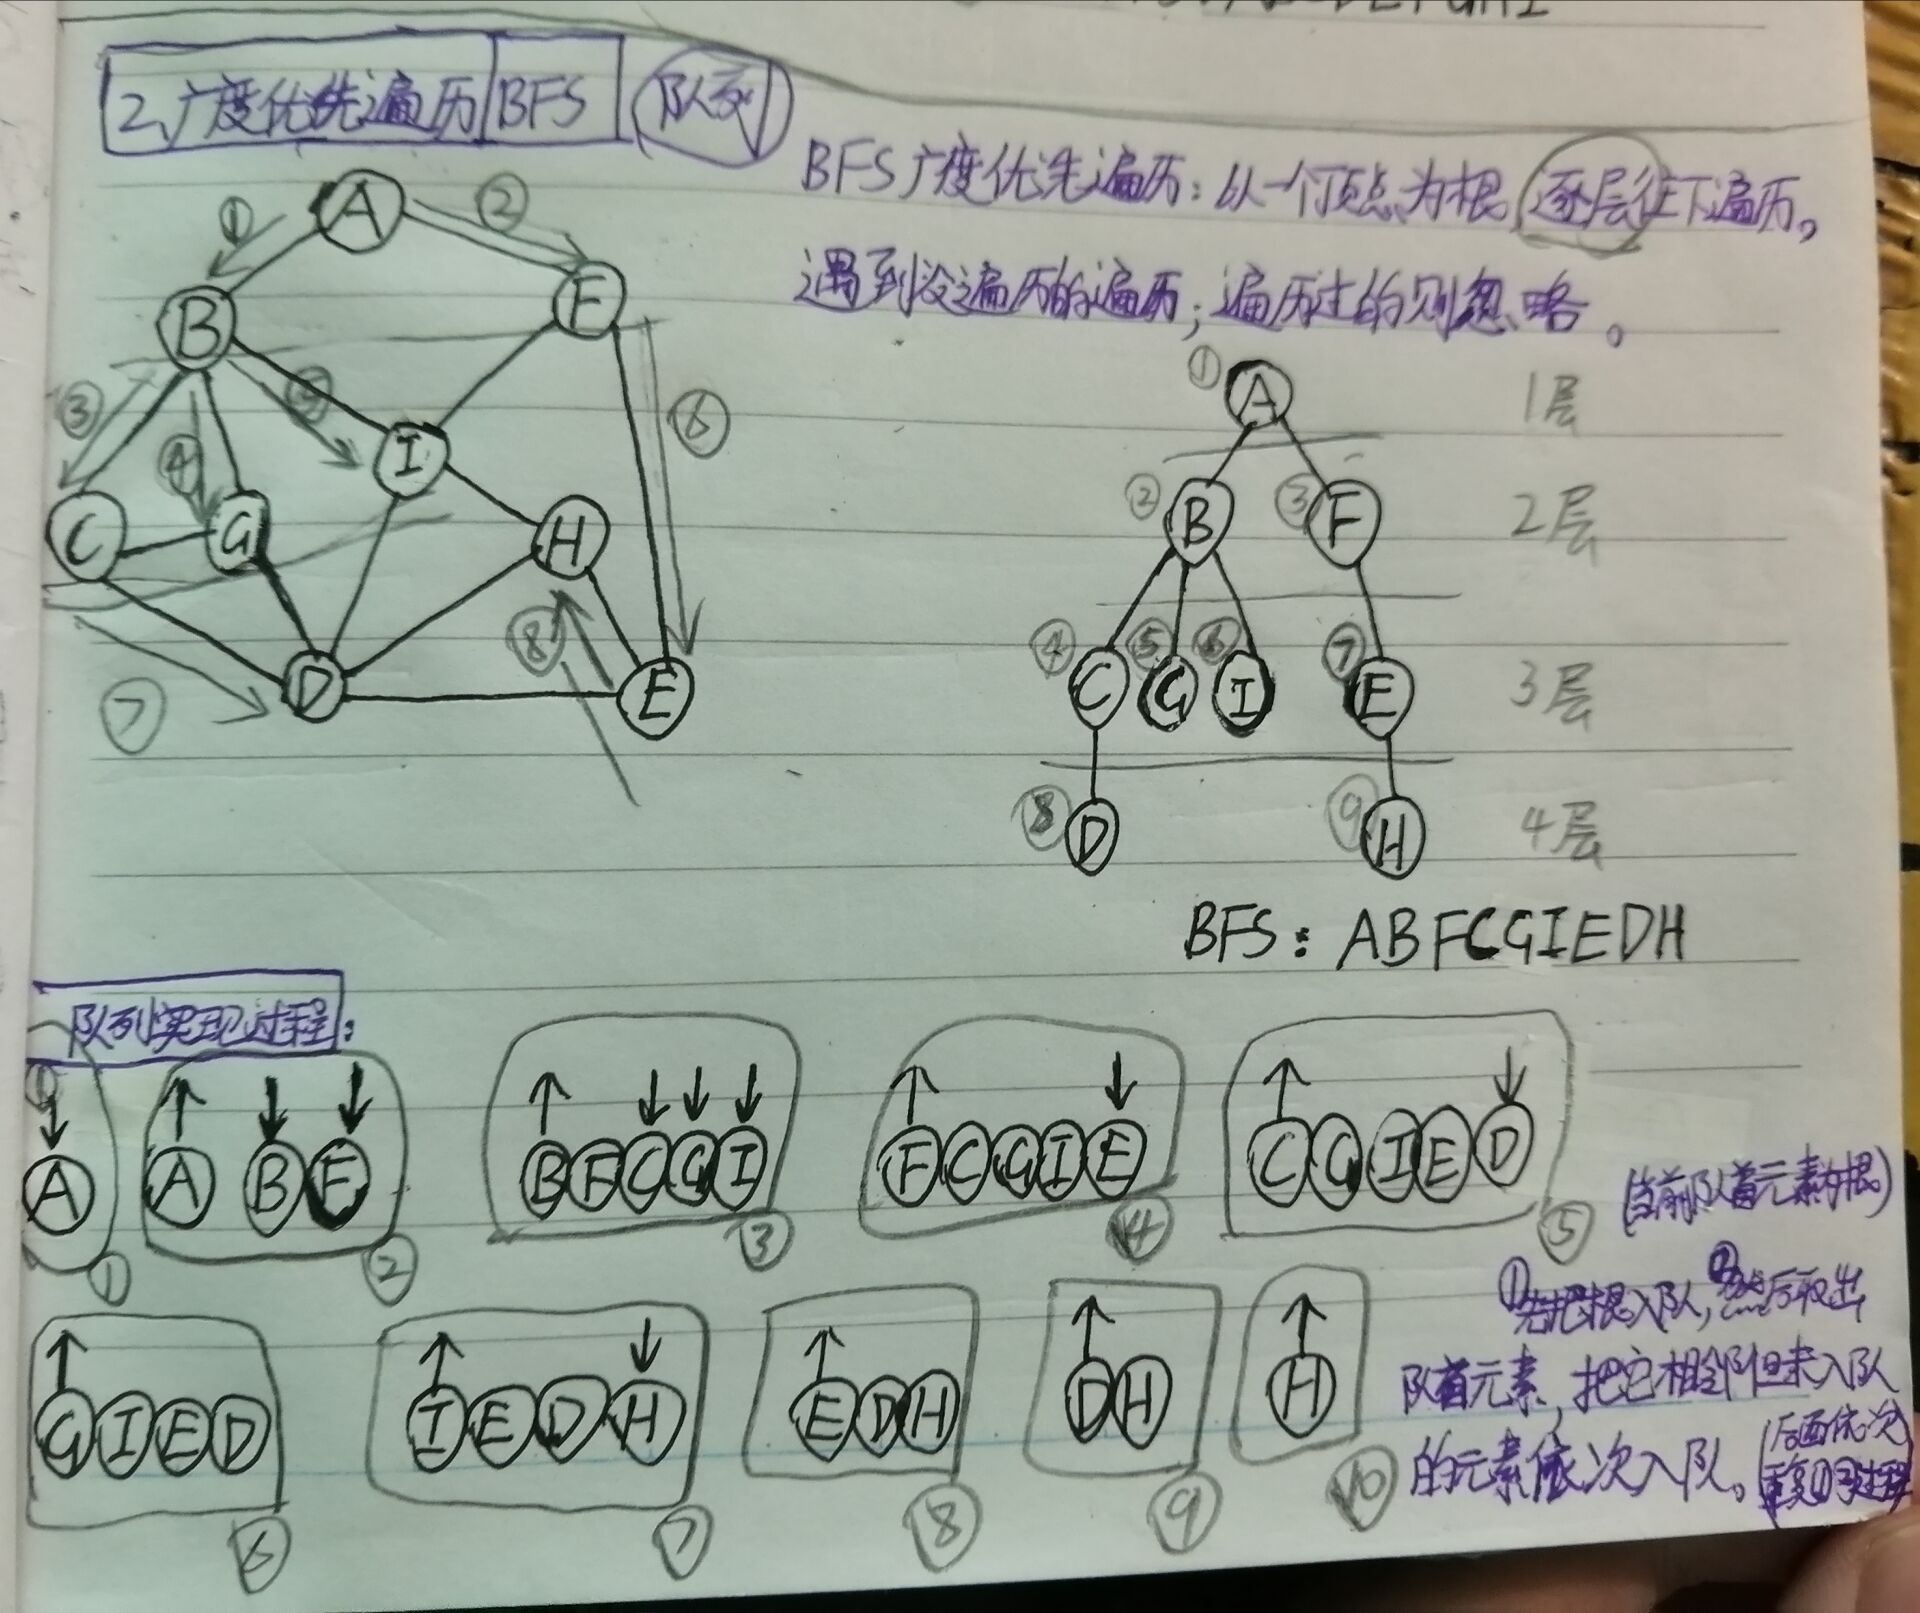 2、广度优先遍历 BFS 队列
BFS广度优先遍历：从一个顶点为根,逐层往下遍历。
遇到没遍历的遍历；遍历过的则忽略。
① A ②
B F
③ ④ ⑤ I ⑥
C G H
⑧
D E
⑦
① A 1层
② B ③ F 2层
④ ⑤ ⑥ ⑦
C G I E 3层
⑧ D ⑨ H 4层
BFS：ABFCGIEDH
队列实现过程：
A ①
A B F ②
B F C G I ③
F C G I E ④
C G I E D ⑤
G I E D ⑥
I E D H ⑦
E D H ⑧
D H ⑨
H ⑩
(当前队首元素为根)
①先把根入队,②然后取出
队首元素,把它相邻但未入队
的元素依次入队。
(后面依次